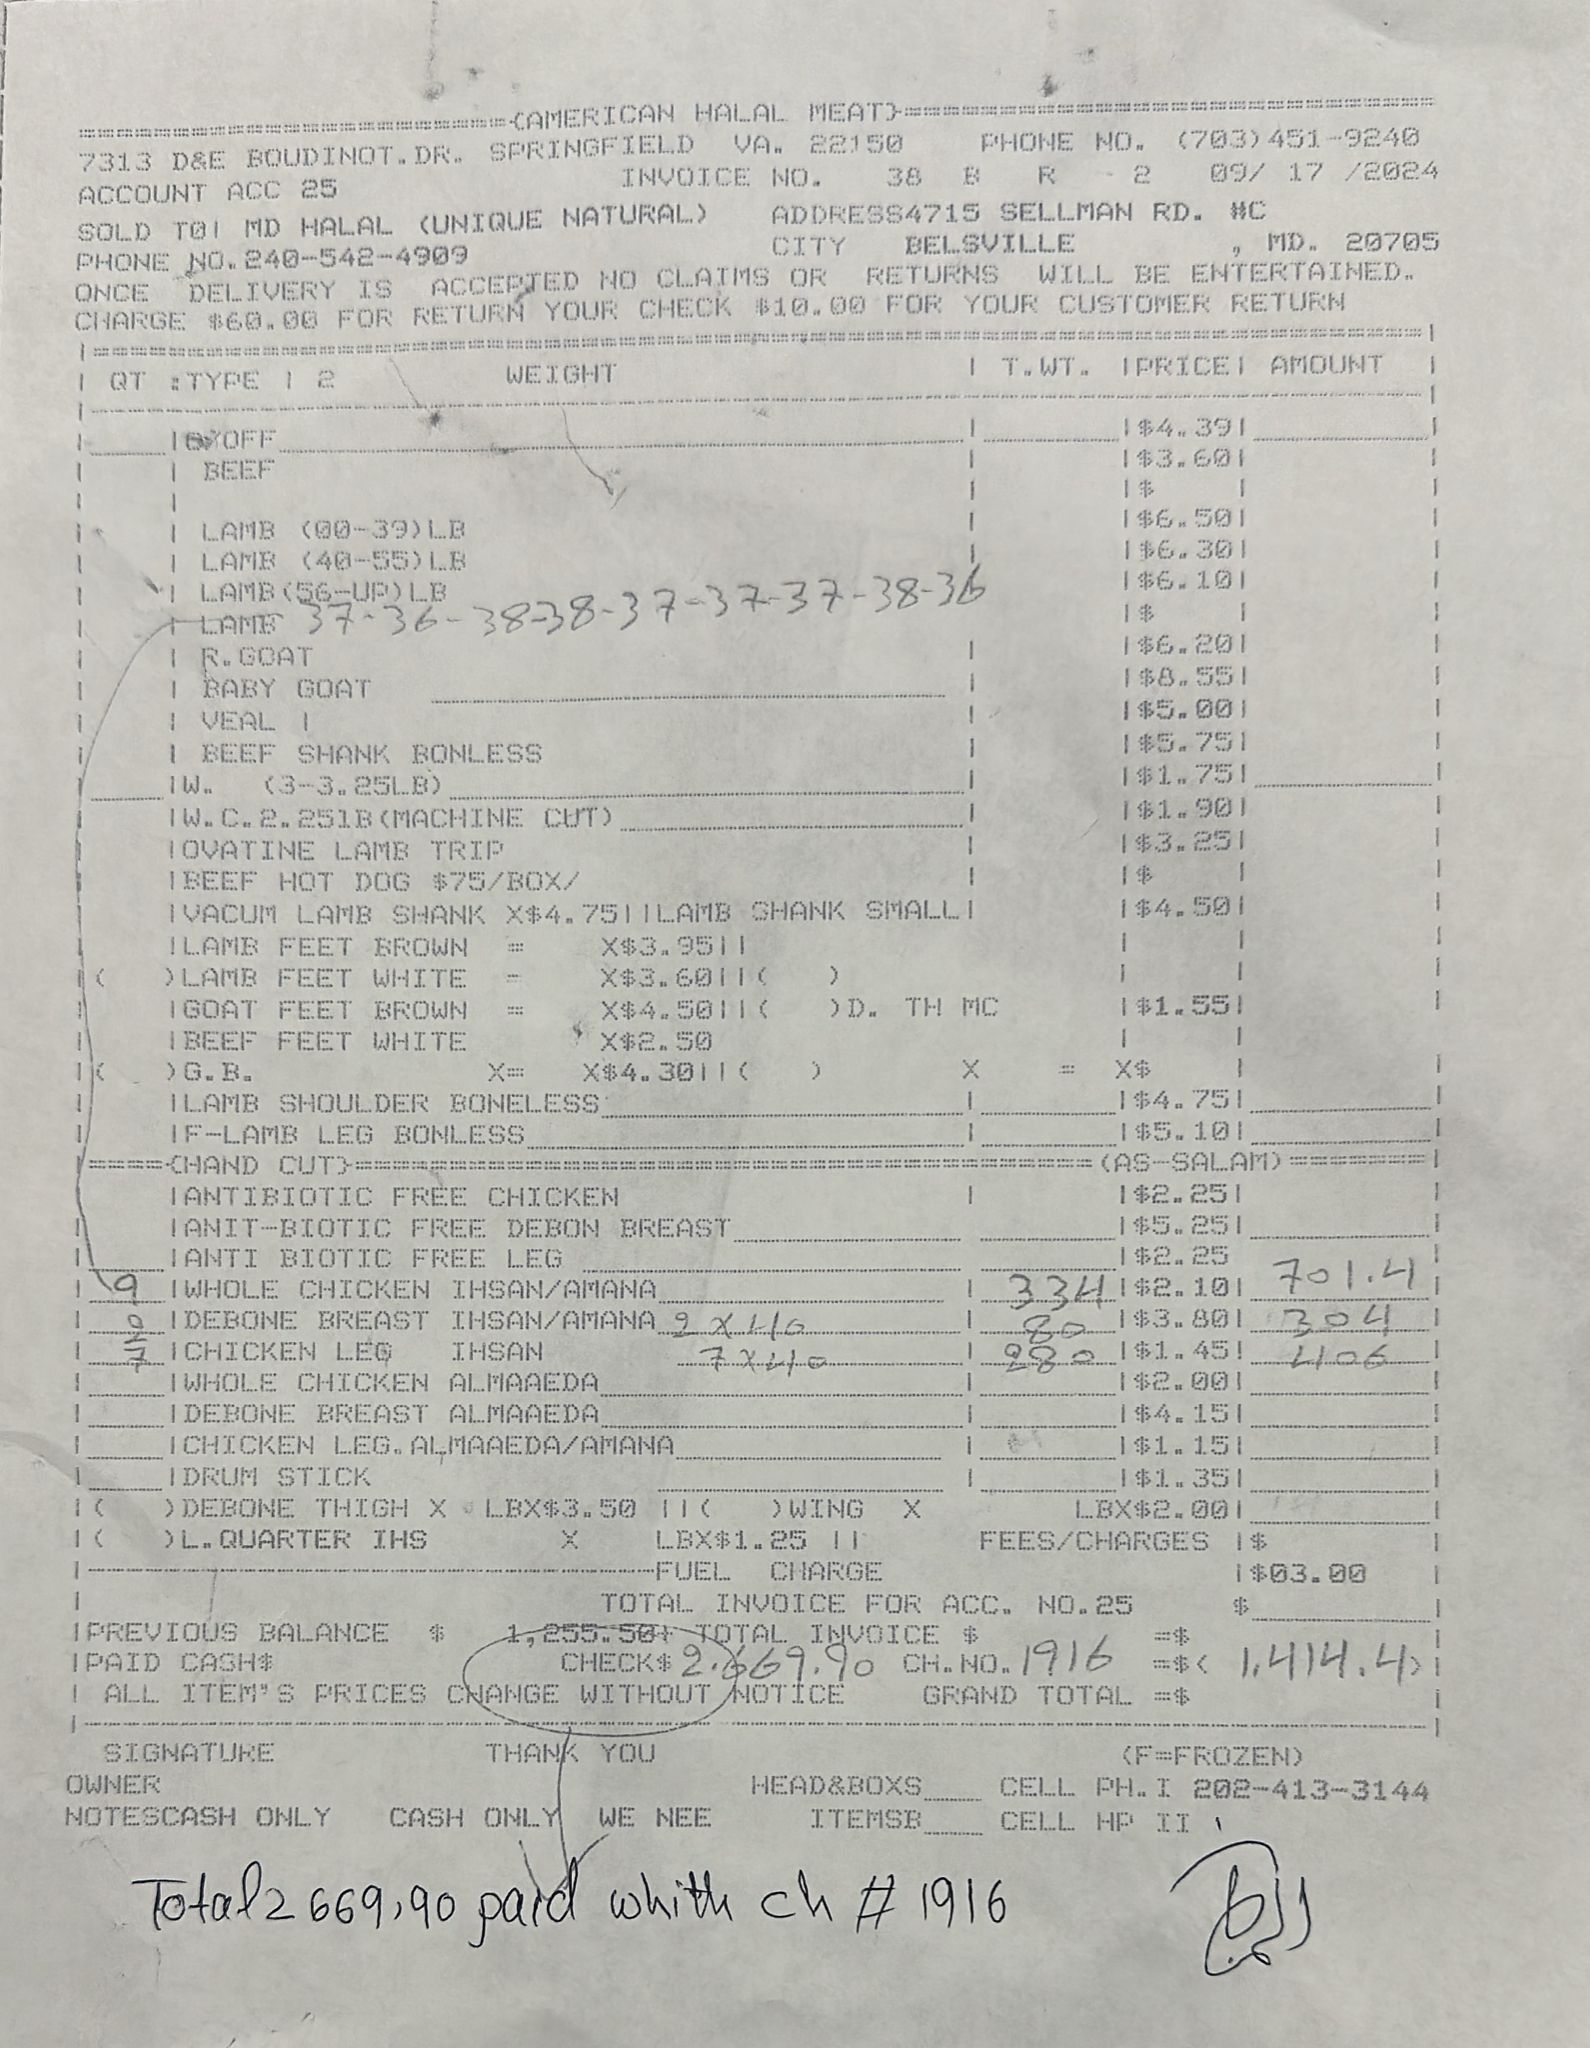 =======================(AMERICAN HALAL MEAT)============================
7313 D&E BOUDINOT.DR. SPRINGFIELD VA. 22150 PHONE NO. (703)451-9240
ACCOUNT ACC 25 INVOICE NO. 38 B R - 2 09/ 17 /2024
SOLD TO| MD HALAL (UNIQUE NATURAL) ADDRESS4715 SELLMAN RD. #C
PHONE NO.240-542-4909 CITY BELSVILLE , MD. 20705
ONCE DELIVERY IS ACCEPTED NO CLAIMS OR RETURNS WILL BE ENTERTAINED.
CHARGE $60.00 FOR RETURN YOUR CHECK $10.00 FOR YOUR CUSTOMER RETURN
| QT :TYPE | 2 WEIGHT | T.WT. |PRICE| AMOUNT |
YOFF |$4.39|
| BEEF |$3.60|
|$ |
| LAMB (00-39)LB |$6.50|
| LAMB (40-55)LB |$6.30|
| LAMB(56-UP)LB |$6.10|
| LAMB 37-36-38-38-37-37-37-38-36 |$ |
| R.GOAT |$6.20|
| BABY GOAT |$8.55|
| VEAL | |$5.00|
| BEEF SHANK BONLESS |$5.75|
|W. (3-3.25LB) |$1.75|
|W.C.2.25lB(MACHINE CUT) |$1.90|
|OVATINE LAMB TRIP |$3.25|
|BEEF HOT DOG $75/BOX/ |$ |
|VACUM LAMB SHANK X$4.75||LAMB SHANK SMALL| |$4.50|
|LAMB FEET BROWN = X$3.95||
|( )LAMB FEET WHITE = X$3.60||( )
|GOAT FEET BROWN = X$4.50||( )D. TH MC |$1.55|
|BEEF FEET WHITE X$2.50
|( )G.B. X= X$4.30||( ) X = X$ |
|LAMB SHOULDER BONELESS |$4.75|
|F-LAMB LEG BONLESS |$5.10|
|====(HAND CUT)======================================(AS-SALAM)=======|
|ANTIBIOTIC FREE CHICKEN |$2.25|
|ANIT-BIOTIC FREE DEBON BREAST |$5.25|
|ANTI BIOTIC FREE LEG |$2.25
9 |WHOLE CHICKEN IHSAN/AMANA 334 |$2.10| 701.4
2 |DEBONE BREAST IHSAN/AMANA 2 X 40 80 |$3.80| 304
7 |CHICKEN LEG IHSAN 7 X 40 280 |$1.45| 406
|WHOLE CHICKEN ALMAAEDA |$2.00|
|DEBONE BREAST ALMAAEDA |$4.15|
|CHICKEN LEG.ALMAAEDA/AMANA |$1.15|
|DRUM STICK |$1.35|
|( )DEBONE THIGH X LBX$3.50 ||( )WING X LBX$2.00|
|( )L.QUARTER IHS X LBX$1.25 || FEES/CHARGES |$
|------------------------------FUEL CHARGE |$03.00 |
| TOTAL INVOICE FOR ACC. NO.25 $
|PREVIOUS BALANCE $ 1,255.50+ TOTAL INVOICE $ =$
|PAID CASH$ CHECK$ 2.669.90 CH.NO. 1916 =$( 1,414.4)|
| ALL ITEM'S PRICES CHANGE WITHOUT NOTICE GRAND TOTAL =$
SIGNATURE THANK YOU (F=FROZEN)
OWNER HEAD&BOXS___ CELL PH.I 202-413-3144
NOTESCASH ONLY CASH ONLY WE NEE ITEMSB___ CELL HP II
Total 2669,90 paid whith ch # 1916